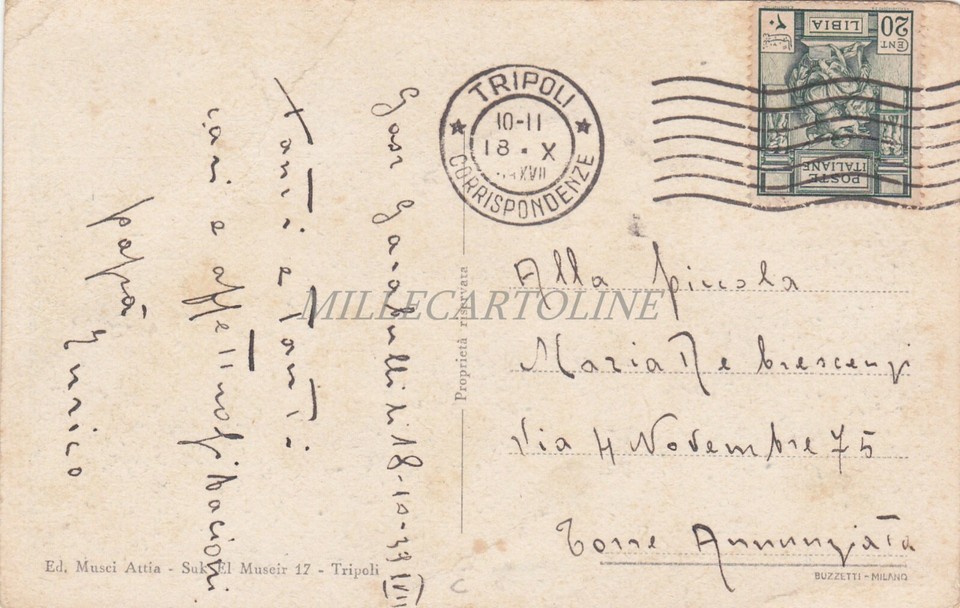 20
CENT
LIBIA
POSTE
ITALIANE
TRIPOLI
10-11
18 · X
XVII
CORRISPONDENZE
Gasr Garabulli li 18-10-39 XVII
tanti e tanti
cari e affettuosi bacioni
papà Enrico
Proprietà riservata
MILLECARTOLINE
Alla piccola
Maria De Crescenzi
Via 4 Novembre 75
Torre Annunziata
Ed. Musci Attia - Suk El Muscir 17 - Tripoli
BUZZETTI - MILANO